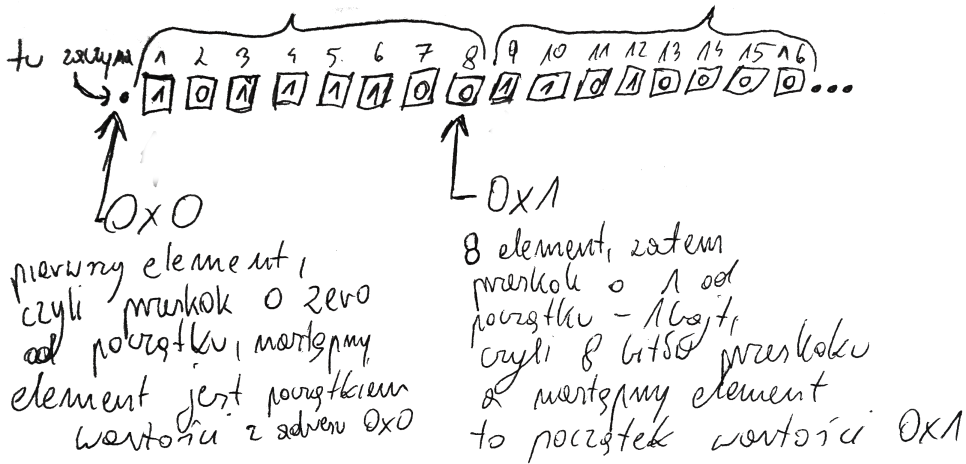 1 2 3 4 5. 6 7 8 9 10 11 12 13 14 15 16
tu zaczyna
1 0 1 1 1 1 0 0 1 1 0 1 0 0 0 0 ...
0x0
0x1
pierwszy element,
czyli przeskok o zero
od początku, następny
element jest początkiem
wartości z adresu 0x0
8 element, zatem
przeskok o 1 od
początku - 1 bajt,
czyli 8 bitów przeskoku
a następny element
to początek wartości 0x1